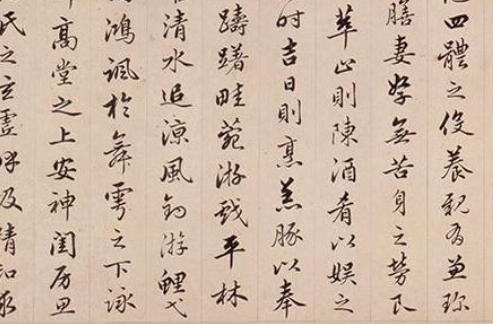 四體之役養親有兼珍
膳妻孥無苦身之勞良
萃止則陳酒肴以娛之
時吉日則烹羔豚以奉
躊躇畦菀游戲平林
清水追涼風釣游鯉弋
鴻諷於舞雩之下詠
高堂之上安神閨房思
氏之玄虛呼吸精和求